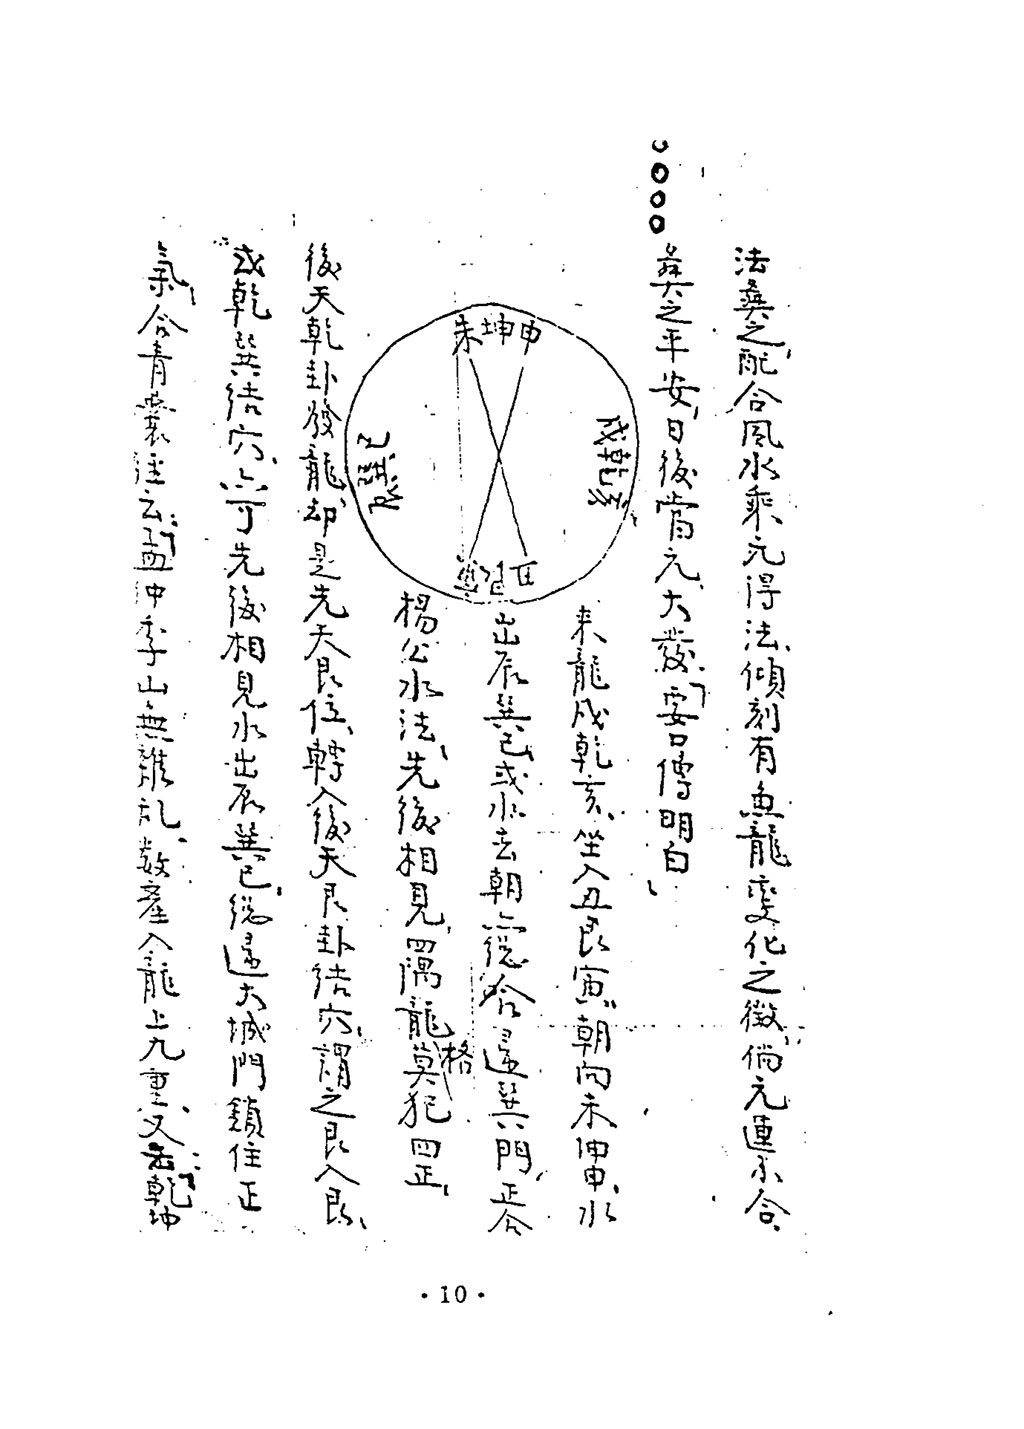 法葬之、配合風水乘元得法、傾刻有魚龍變化之徵、倘元運不合、
葬之平安、日後當元、大發、要口傳明白、
未坤申
戌乾亥
丑
來龍戌乾亥、坐入丑艮寅、朝向未坤申、水
出辰巽巳、或水去朝六總合這巽門、正合
楊公水法、先後相見、四隅龍格莫犯四正、
後天乾卦發龍、却是先天艮位、轉入後天艮卦結穴、謂之艮入艮、
或乾巽結穴、六可先後相見水出辰巽巳、總這大城門鎖住正
氣、合青囊經云：「孟仲季山無雜乱、数産入龍上九重、又云：「乾坤
·10·